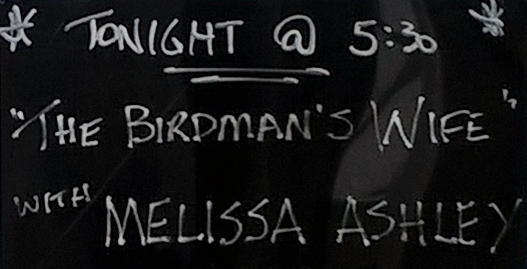 * TONIGHT @ 5:30 *
"THE BIRDMAN'S WIFE"
WITH MELISSA ASHLEY